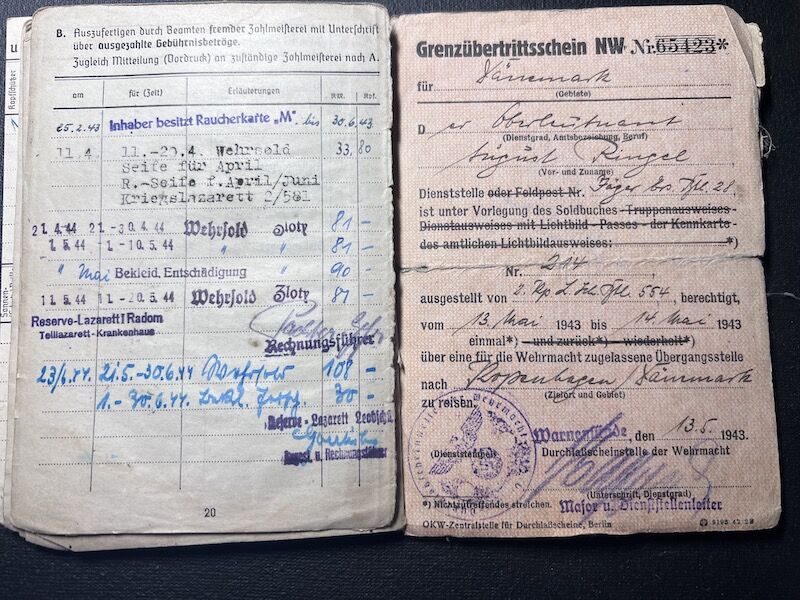 B. Auszufertigen durch Beamten fremder Zahlmeisterei mit Unterschrift
über ausgezahlte Gebührnisbeträge.
Zugleich Mitteilung (Vordruck) an zuständige Zahlmeisterei nach A.
am für (Zeit) Erläuterungen RM. Rpf.
25.2.43 Inhaber besitzt Raucherkarte „M" bis 30.6.43
11.4. 11.-20.4. Wehrsold 33.80
Seife für April
R.-Seife f.April/Juni
Kriegslazarett 2/581
21.4.44 21-30.4.44 Wehrsold Zloty 81 -
1.5.44 1.-10.5.44 " " 81 -
" Mai Bekleid, Entschädigung " 90 -
11.5.44 11.-20.5.44 Wehrsold Zloty 81 -
Reserve-Lazarett I Radom
Teillazarett-Krankenhaus
Rechnungsführer
23/6.44 21.5.-30.6.44 Wehrsold 108 -
1.-30.6.44 30 -
Reserve-Lazarett Leobschütz
Rechnungsführer
20
Kopfschützer
Grenzübertrittsschein NW Nr. 65423*
für Dänemark
(Gebiete)
D er Oberleutnant
(Dienstgrad, Amtsbezeichnung, Beruf)
August Ringel
(Vor- und Zuname)
Dienststelle oder Feldpost-Nr. Jäger Ers. Btl. 28,
ist unter Vorlegung des Soldbuches - Truppenausweises -
Dienstausweises mit Lichtbild - Passes - der Kennkarte -
des amtlichen Lichtbildausweises: *)
Nr. 214
ausgestellt von 2. Kp 554, berechtigt,
vom 13. Mai 1943 bis 14. Mai 1943
einmal*) - und zurück*) - wiederholt*)
über eine für die Wehrmacht zugelassene Übergangsstelle
nach Kopenhagen/Dänemark
(Zielort und Gebiet)
zu reisen.
Warnemünde, den 13.5. 1943.
(Dienststempel) Durchlaßscheinstelle der Wehrmacht
(Unterschrift, Dienstgrad)
*) Nichtzutreffendes streichen. Major u. Dienststellenleiter
OKW-Zentralstelle für Durchlaßscheine, Berlin